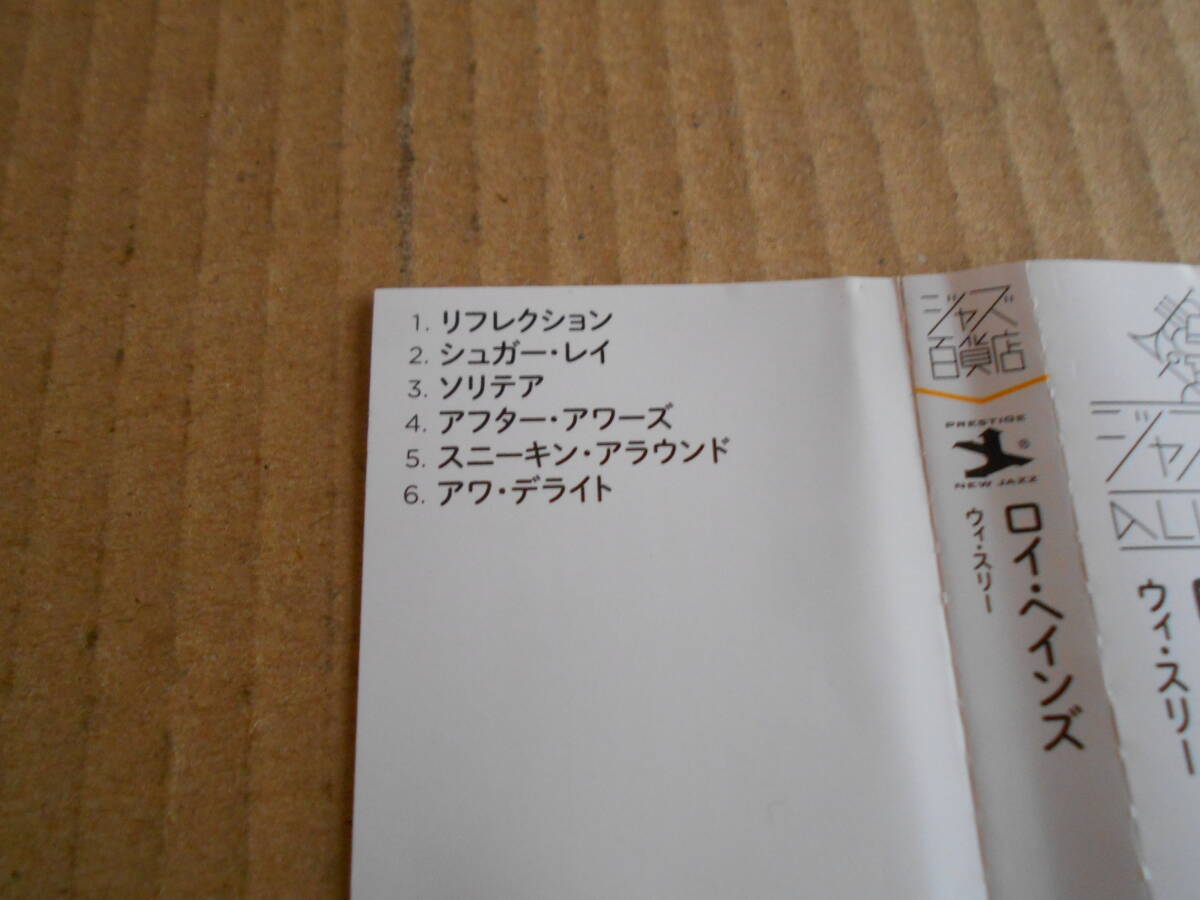 1. リフレクション
2. シュガー・レイ
3. ソリテア
4. アフター・アワーズ
5. スニーキン・アラウンド
6. アワ・デライト
ジャズ
百貨店
PRESTIGE
®
NEW JAZZ
ロイ・ヘインズ
ウィ・スリー
ウィ・スリー